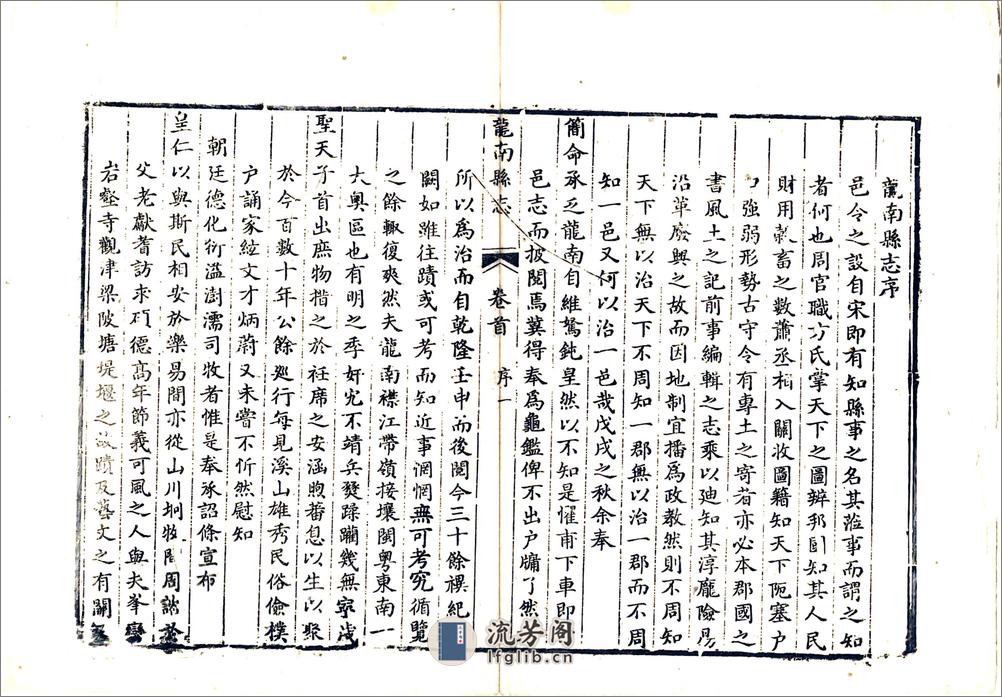 龍南縣志序
邑令之設自宋即有知縣事之名其涖事而謂之知
者何也周官職方氏掌天下之圖辨邦國知其人民
財用穀畜之數蕭丞相入關收圖籍知天下阨塞户
口強弱形勢古守令有專土之寄者亦必本郡國之
書風土之記前事編輯之志乘以廸知其淳龐險易
沿革廢興之故而因地制宜播為政教然則不周知
天下無以治天下不周知一郡無以治一郡而不周
知一邑又何以治一邑哉戊戌之秋余奉
簡命承乏龍南自維駑鈍皇然以不知是懼甫下車即
邑志而披閱焉冀得奉為龜鑑俾不出户牖了然
龍南縣志 卷首 序 一
所以為治而自乾隆壬申而後閱今三十餘禩紀
闕如雖往蹟或可考而知近事罔惘無可考究循覽
之餘輙復爽然夫龍南襟江帶嶺接壤閩粵東南一
大奥區也有明之季奸宄不靖兵燹蹂躪幾無寧歲
聖天子首出庶物措之於衽席之安涵煦蕃息以生以聚
於今百數十年公餘廵行每見溪山雄秀民俗儉樸
户誦家絃文才炳蔚又未嘗不忻然慰知
朝廷德化衍溢澍濡司牧者惟是奉承詔條宣布
皇仁以與斯民相安於樂易間亦從山川坰牧間周諮於
父老獻耆訪求碩德高年節義可風之人與夫峯巒
岩壑寺觀津梁陂塘堤堰之故蹟及藝文之有關
流芳阁
lfglib.cn